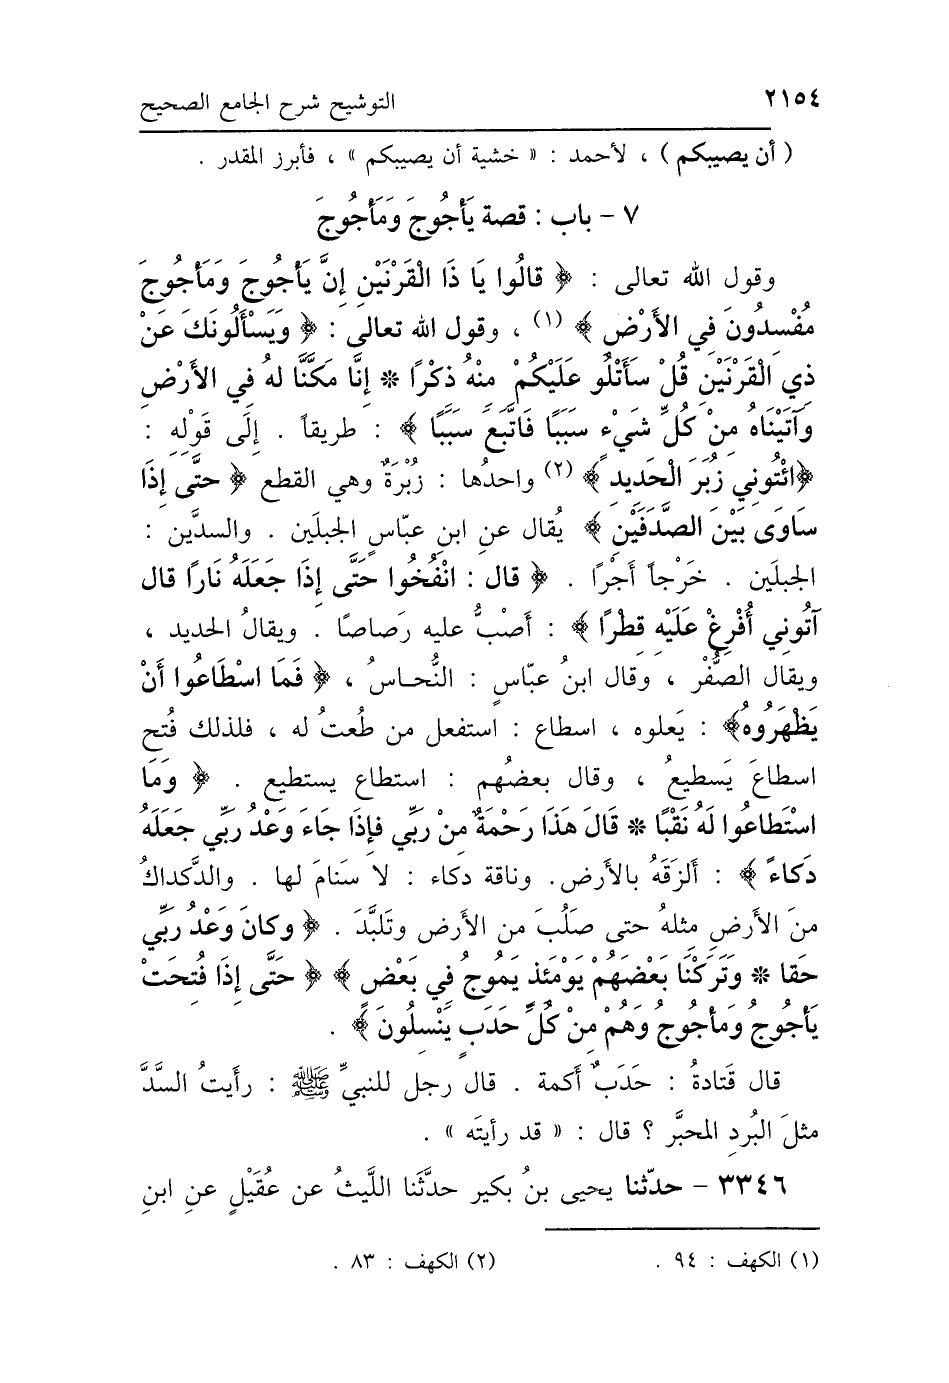 ٢١٥٤ التوشيح شرح الجامع الصحيح
( أن يصيبكم ) ، لأحمد : « خشية أن يصيبكم » ، فأبرز المقدر .
٧ - باب : قصة يَأجُوجَ وَمَأجُوجَ
وقول الله تعالى : ﴿ قالُوا يَا ذَا الْقَرْنَيْنِ إنَّ يَأجُوجَ وَمَأجُوجَ
مُفْسدُونَ فِي الأَرْضِ ﴾ (١) ، وقول الله تعالى : ﴿ وَيَسْأَلُونَكَ عَنْ
ذِي الْقَرْنَيْنِ قُلْ سَأَتْلُو عَلَيْكُمْ مِنْهُ ذِكْرًا * إنَّا مَكنَّا لهُ فِي الأَرْضِ
وَآتَيْنَاهُ مِنْ كُلِّ شَيْءٍ سَبَبًا فَاتَّبَعَ سَبَبًا ﴾ : طريقاً . إِلَى قَوْلِهِ :
﴿ائْتُونِي زُبَرَ الْحَدِيدِ﴾ (٢) واحدُها : زُبْرَةٌ وهي القطع ﴿ حتَّى إذَا
سَاوَى بَيْنَ الصَّدَفَيْنِ ﴾ يُقال عنِ ابنِ عبّاسٍ الجبلَين . والسدَّين :
الجبلَين . خَرْجاً أجْرًا . ﴿ قال : انْفُخُوا حَتَّى إذَا جَعَلَهُ نَارًا قال
آتُونِي أُفْرِغْ عَلَيْهِ قِطْرًا ﴾ : أصبُّ عليه رَصاصًا . ويقالُ الحديد ،
ويقال الصُّفْر ، وقال ابنُ عبّاسٍ : النُّحـاسُ ، ﴿ فَمَا اسْطَاعُوا أنْ
يَظْهَرُوهُ﴾ : يَعلوه ، اسطاع : استفعل من طُعتُ له ، فلذلك فُتح
اسطاعَ يَسطيعُ ، وقال بعضُهم : استطاع يستطيع . ﴿ وَمَا
اسْتَطَاعُوا لَهُ نَقْبًا * قَالَ هَذَا رَحْمَةٌ مِنْ رَبِّي فإذَا جَاءَ وَعْدُ رَبِّي جَعَلَهُ
دَكاءً ﴾ : ألزَقَهُ بالأرض. وناقة دكاء : لا سَنامَ لها . والدَّكداكُ
منَ الأَرضِ مثلهُ حتى صَلُبَ من الأرض وتَلبَّدَ . ﴿ وكانَ وَعْدُ رَبِّي
حَقا * وَتَرَكْنَا بَعْضَهُمْ يَوْمَئذٍ يَموجُ فِي بَعْضٍ ﴾ ﴿ حَتَّى إذَا فُتحَتْ
يَأجُوجُ ومَأجُوجُ وَهُمْ مِنْ كُلِّ حَدَبٍ يَنْسلُونَ ﴾ .
قال قَتادةُ : حَدَبٌ أكمة . قال رجل للنبيِّ ﷺ : رأيتُ السَّدَّ
مثلَ البُردِ المحبَّر ؟ قال : « قد رأيتَه » .
٣٣٤٦ - حدّثنا يحيى بنُ بكير حدَّثَنا اللَّيثُ عن عُقَيْلٍ عنِ ابنِ
(١) الكهف : ٩٤ . (٢) الكهف : ٨٣ .